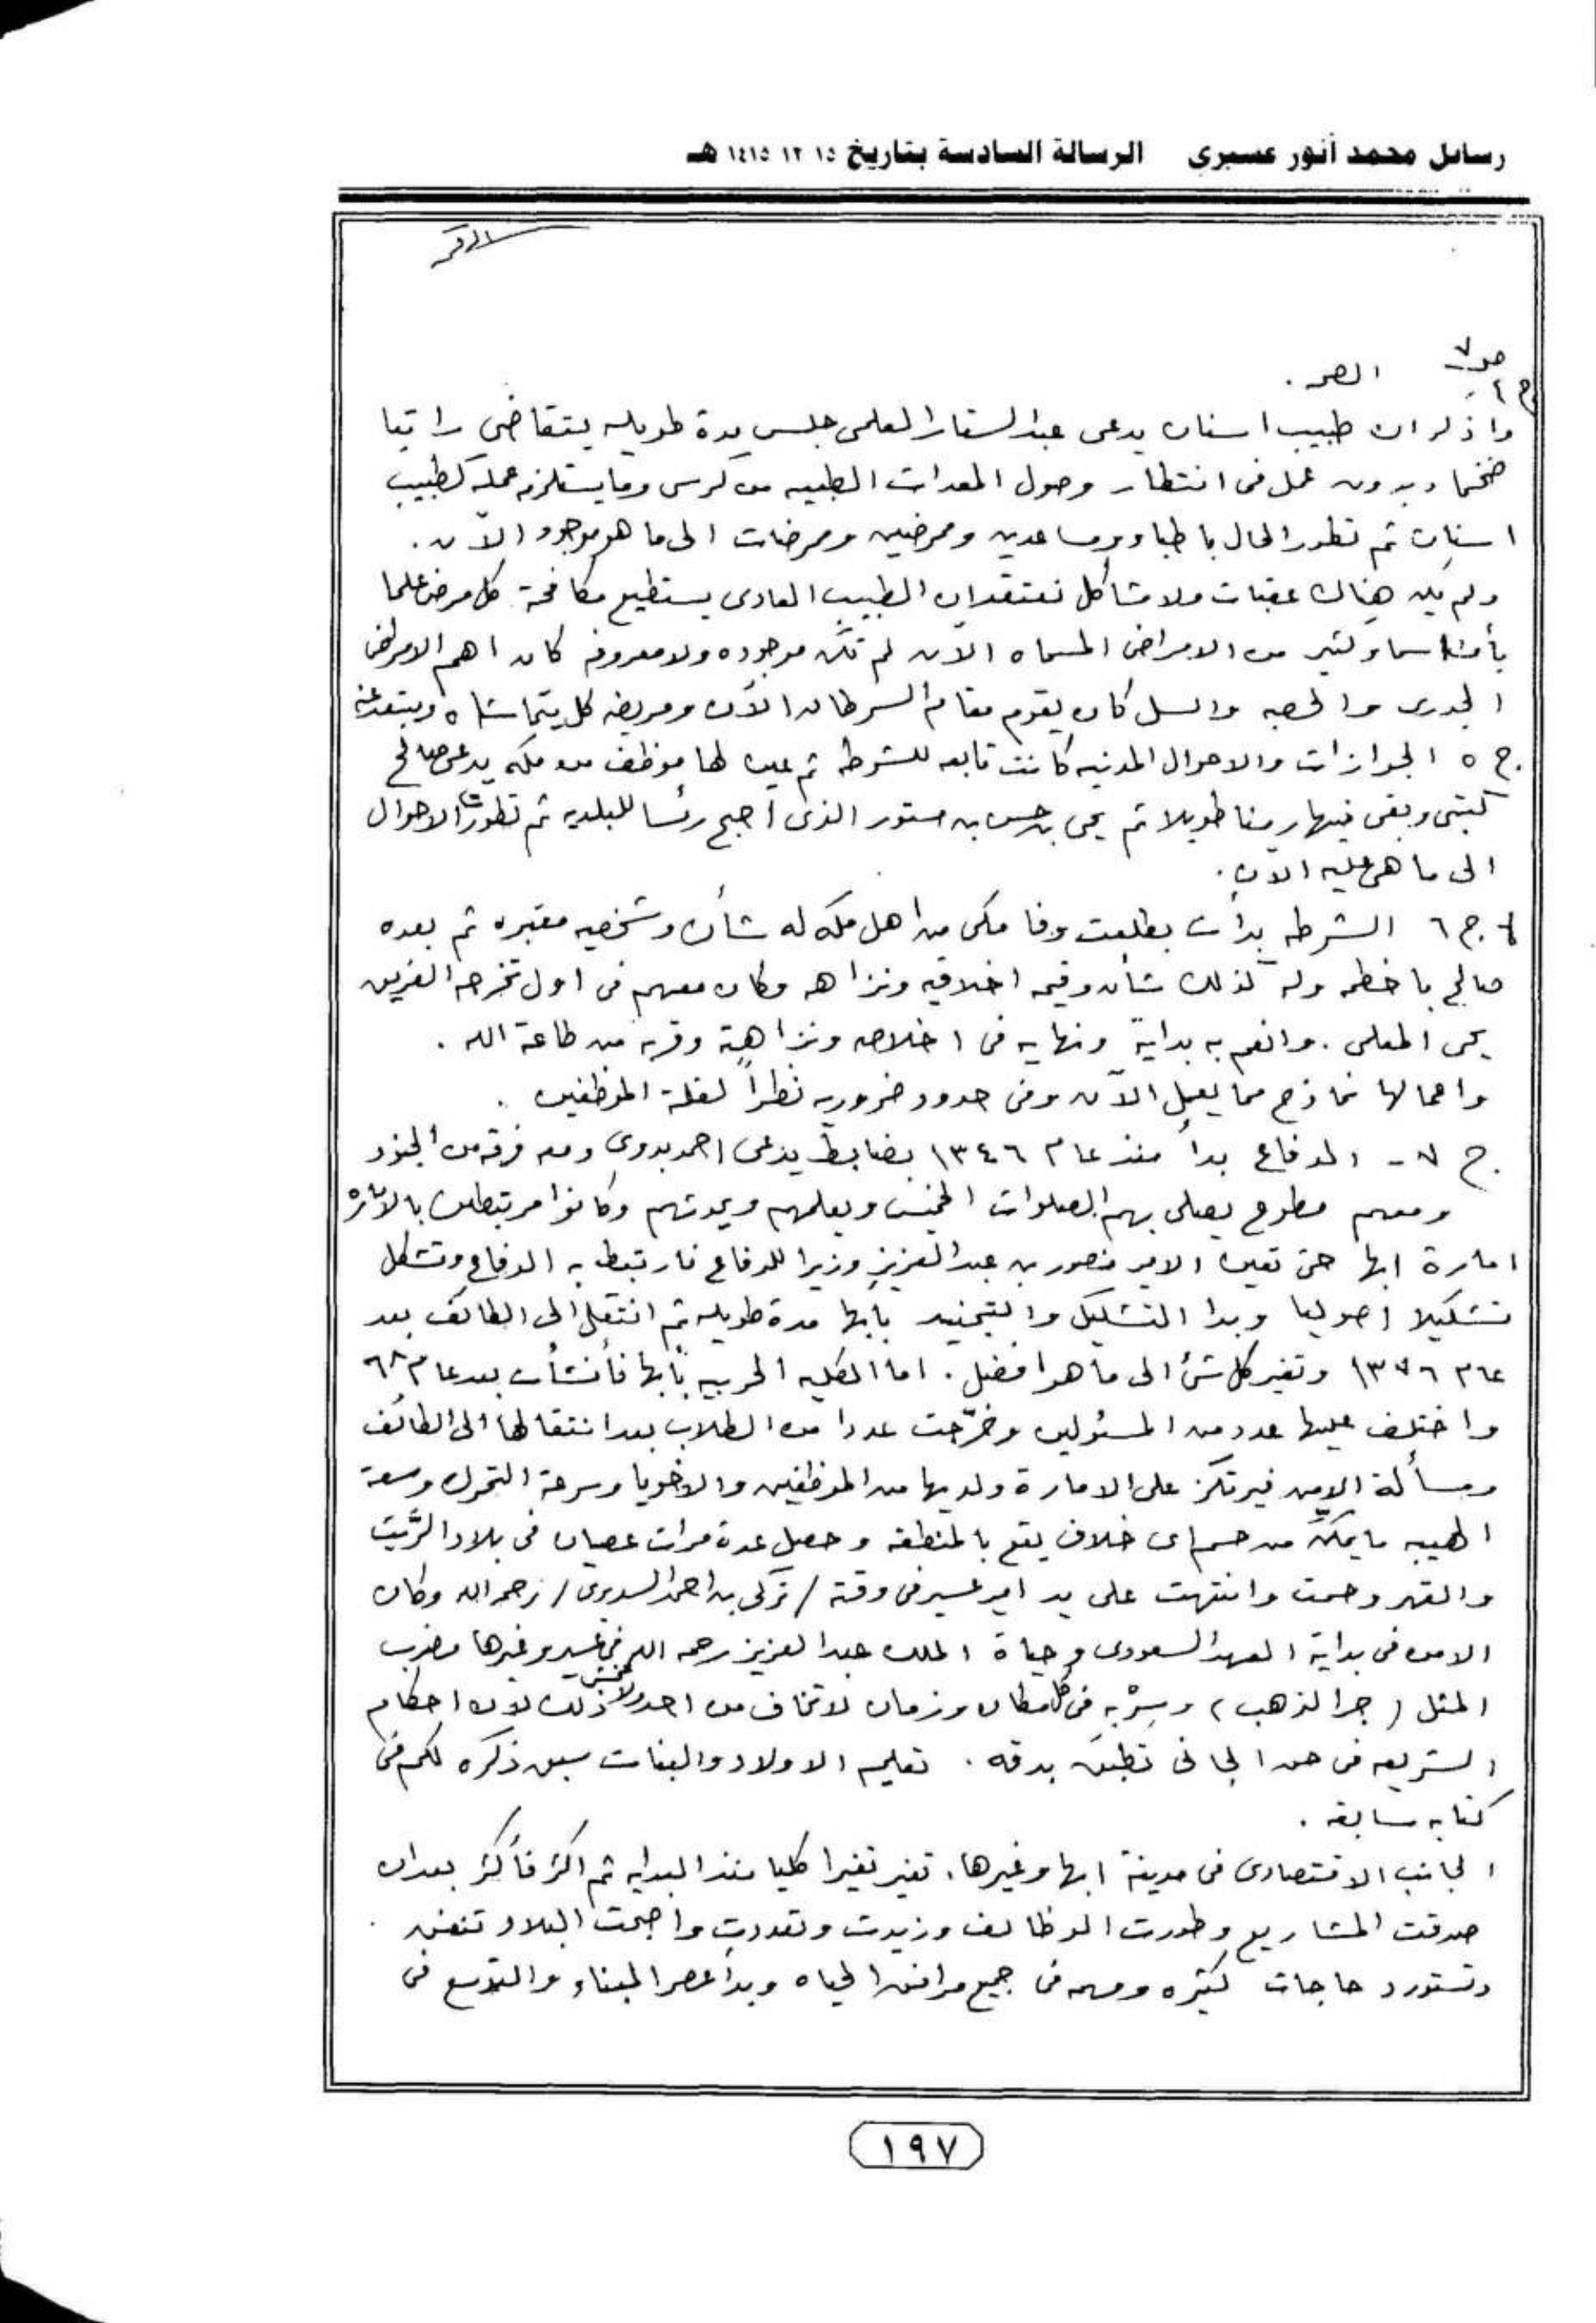 رسائل محمد أنور عسيري الرسالة السادسة بتاريخ ١٥ ١٢ ١٤١٥ هـ
ص ٧
واذكر ان طبيب اسنان يدعى عبدالستار العلمى جلس مدة طويله يتقاضى راتبا
ضخما وبدون عمل فى انتظار وصول المعدات الطبيه من كرسى وما يستلزمه عمله كطبيب
اسنان ثم تطور الحال باطباء ومساعدين وممرضين وممرضات الى ما هو موجود الآن .
ولم يكن هناك عقبات ولا مشاكل نعتقد ان الطبيب العادى يستطيع مكافحة كل مرض علما
بأن اسماء كثير من الامراض المسماه الآن لم تكن موجوده ولا معروفه كان اهم الامراض
الجدرى والحصبه والسل كان يقوم مقام السرطان الآن ومريضه كل يتحاشاه ويبتعد عنه
ج ٥ الجوازات والاحوال المدنيه كانت تابعه للشرطه ثم عين لها موظف من مكه يدعى صالح
كتبى وبقى فيها زمنا طويلا ثم يحى بن حسن بن مستور الذى اصبح رئسا للبلديه ثم تطورت الاحوال
الى ما هى عليه الآن .
ج ٦ الشرطه بدأت بطلعت وفا مكى من اهل مكه له شأن وشخصيه معتبره ثم بعده
صالح باخطمه وله كذلك شأن وقيمه اخلاقيه ونزاهه وكان معهم فى اول تخرجه الفريق
يحى المعلمى . وانعم به بداية ونهايه فى اخلاصه ونزاهة وقربه من طاعة الله .
واعمالها نماذج مما يعمل الآن وفى حدود ضروريه نظراً لقلة الموظفين .
ج ٧ - الدفاع بدأ منذ عام ١٣٤٦ بضابط يدعى احمد بدوى ومعه فرقه من الجنود
ومعهم مطوع يصلى بهم الصلوات الخمس ويعلمهم وكانوا مرتبطين بالاماره
امارة ابها حتى تعين الامير منصور بن عبدالعزيز وزيرا للدفاع فارتبط به الدفاع وتشكل
تشكيلا اصوليا وبدا التشكيل والتجنيد بأبها مدة طويله ثم انتقل الى الطائف بعد
عام ١٣٧٦ وتغير كل شئ الى ما هو افضل . اما الكليه الحربيه بأبها فأنشأت بعد عام ٦٨
واختلف عليها عدد من المسئولين وخرّجت عددا من الطلاب بعد انتقالها الى الطائف
ومسألة الامن فيرتكز على الامارة ولديها من الموظفين والاخويا وسرعة التحرك وسعة
الهيبه ما يمكّن من حسم اى خلاف يقع بالمنطقه وحصل عدة مرات عصيان فى بلاد الرّيث
والقهر وحسمت وانتهت على يد امير عسير فى وقته / تركى بن احمد السديرى / رحمه الله وكان
الامن فى بداية العهد السعودى وحياة الملك عبدالعزيز رحمه الله فى عسير وغيرها مضرب
المثل ( جر الذهب ) وسِرْ به فى كل مكان وزمان لا تخاف من احد ذلك لان احكام
الشريعه فى حق الجانى تطبق بدقه . تعليم الاولاد والبنات سبق ذكره لكم فى
كتابه سابقه .
الجانب الاقتصادى فى مدينة ابها وغيرها . تغير تغيرا كليا منذ البدايه ثم اكثر فأكثر بعد ان
صدقت المشاريع وطورت الوظائف وزيدت وتعددت واصبحت البلاد تنفق
وتستورد حاجات كثيره ومهمه فى جميع مرافق الحياه وبدأ عصر البناء والتوسع فى
١٩٧